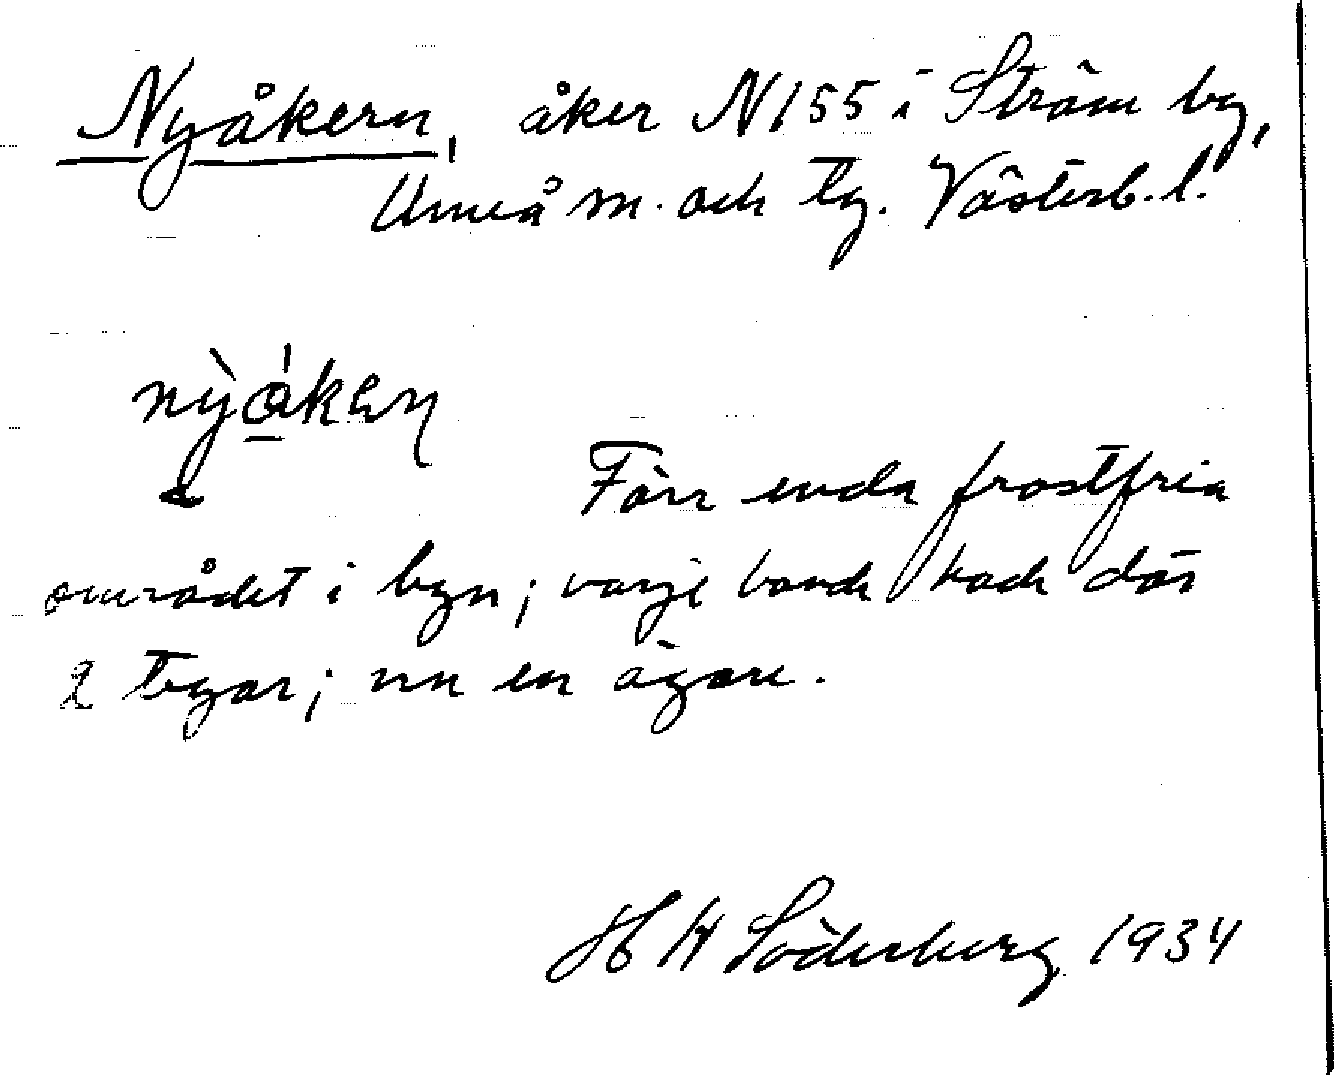 Nyåkern, åker N155 i Ström by,
Umeå sn. och tg. Västerb. l.
nỳåkeṇ
Förr enda frostfria
området i byn; varje bonde hade där
2 tegar; nu en ägare.
H W Söderberg 1934